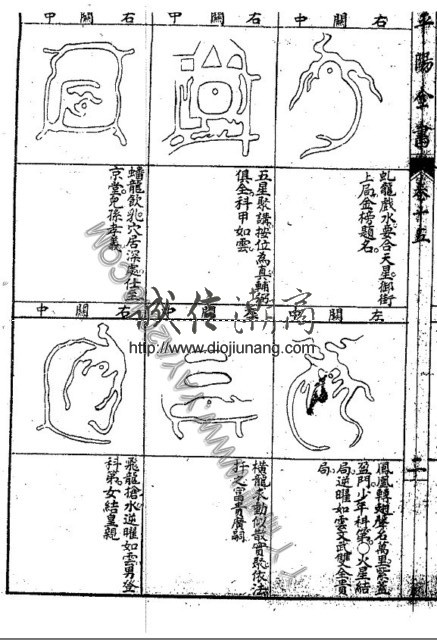 平陽全書
卷十五
右關中
虬龍戲水要合天星御街
上局金榜題名
右關中
五星聚講按位為真輔弼
俱全科甲如雲
右關中
蟠龍飲乳穴居深處仕至
京堂兒孫孝義
左關中
鳳凰轉翅聲名萬里紫蓋
盈門少年科第○火星結
局逆曜如雲文武雙全貴
局
關中
橫龍求動似散實聚依法
扦之富貴廣嗣
右關中
飛龍搶水逆曜如雲男登
科第女結皇親
誠信 商
http://www.diojiunang.com/